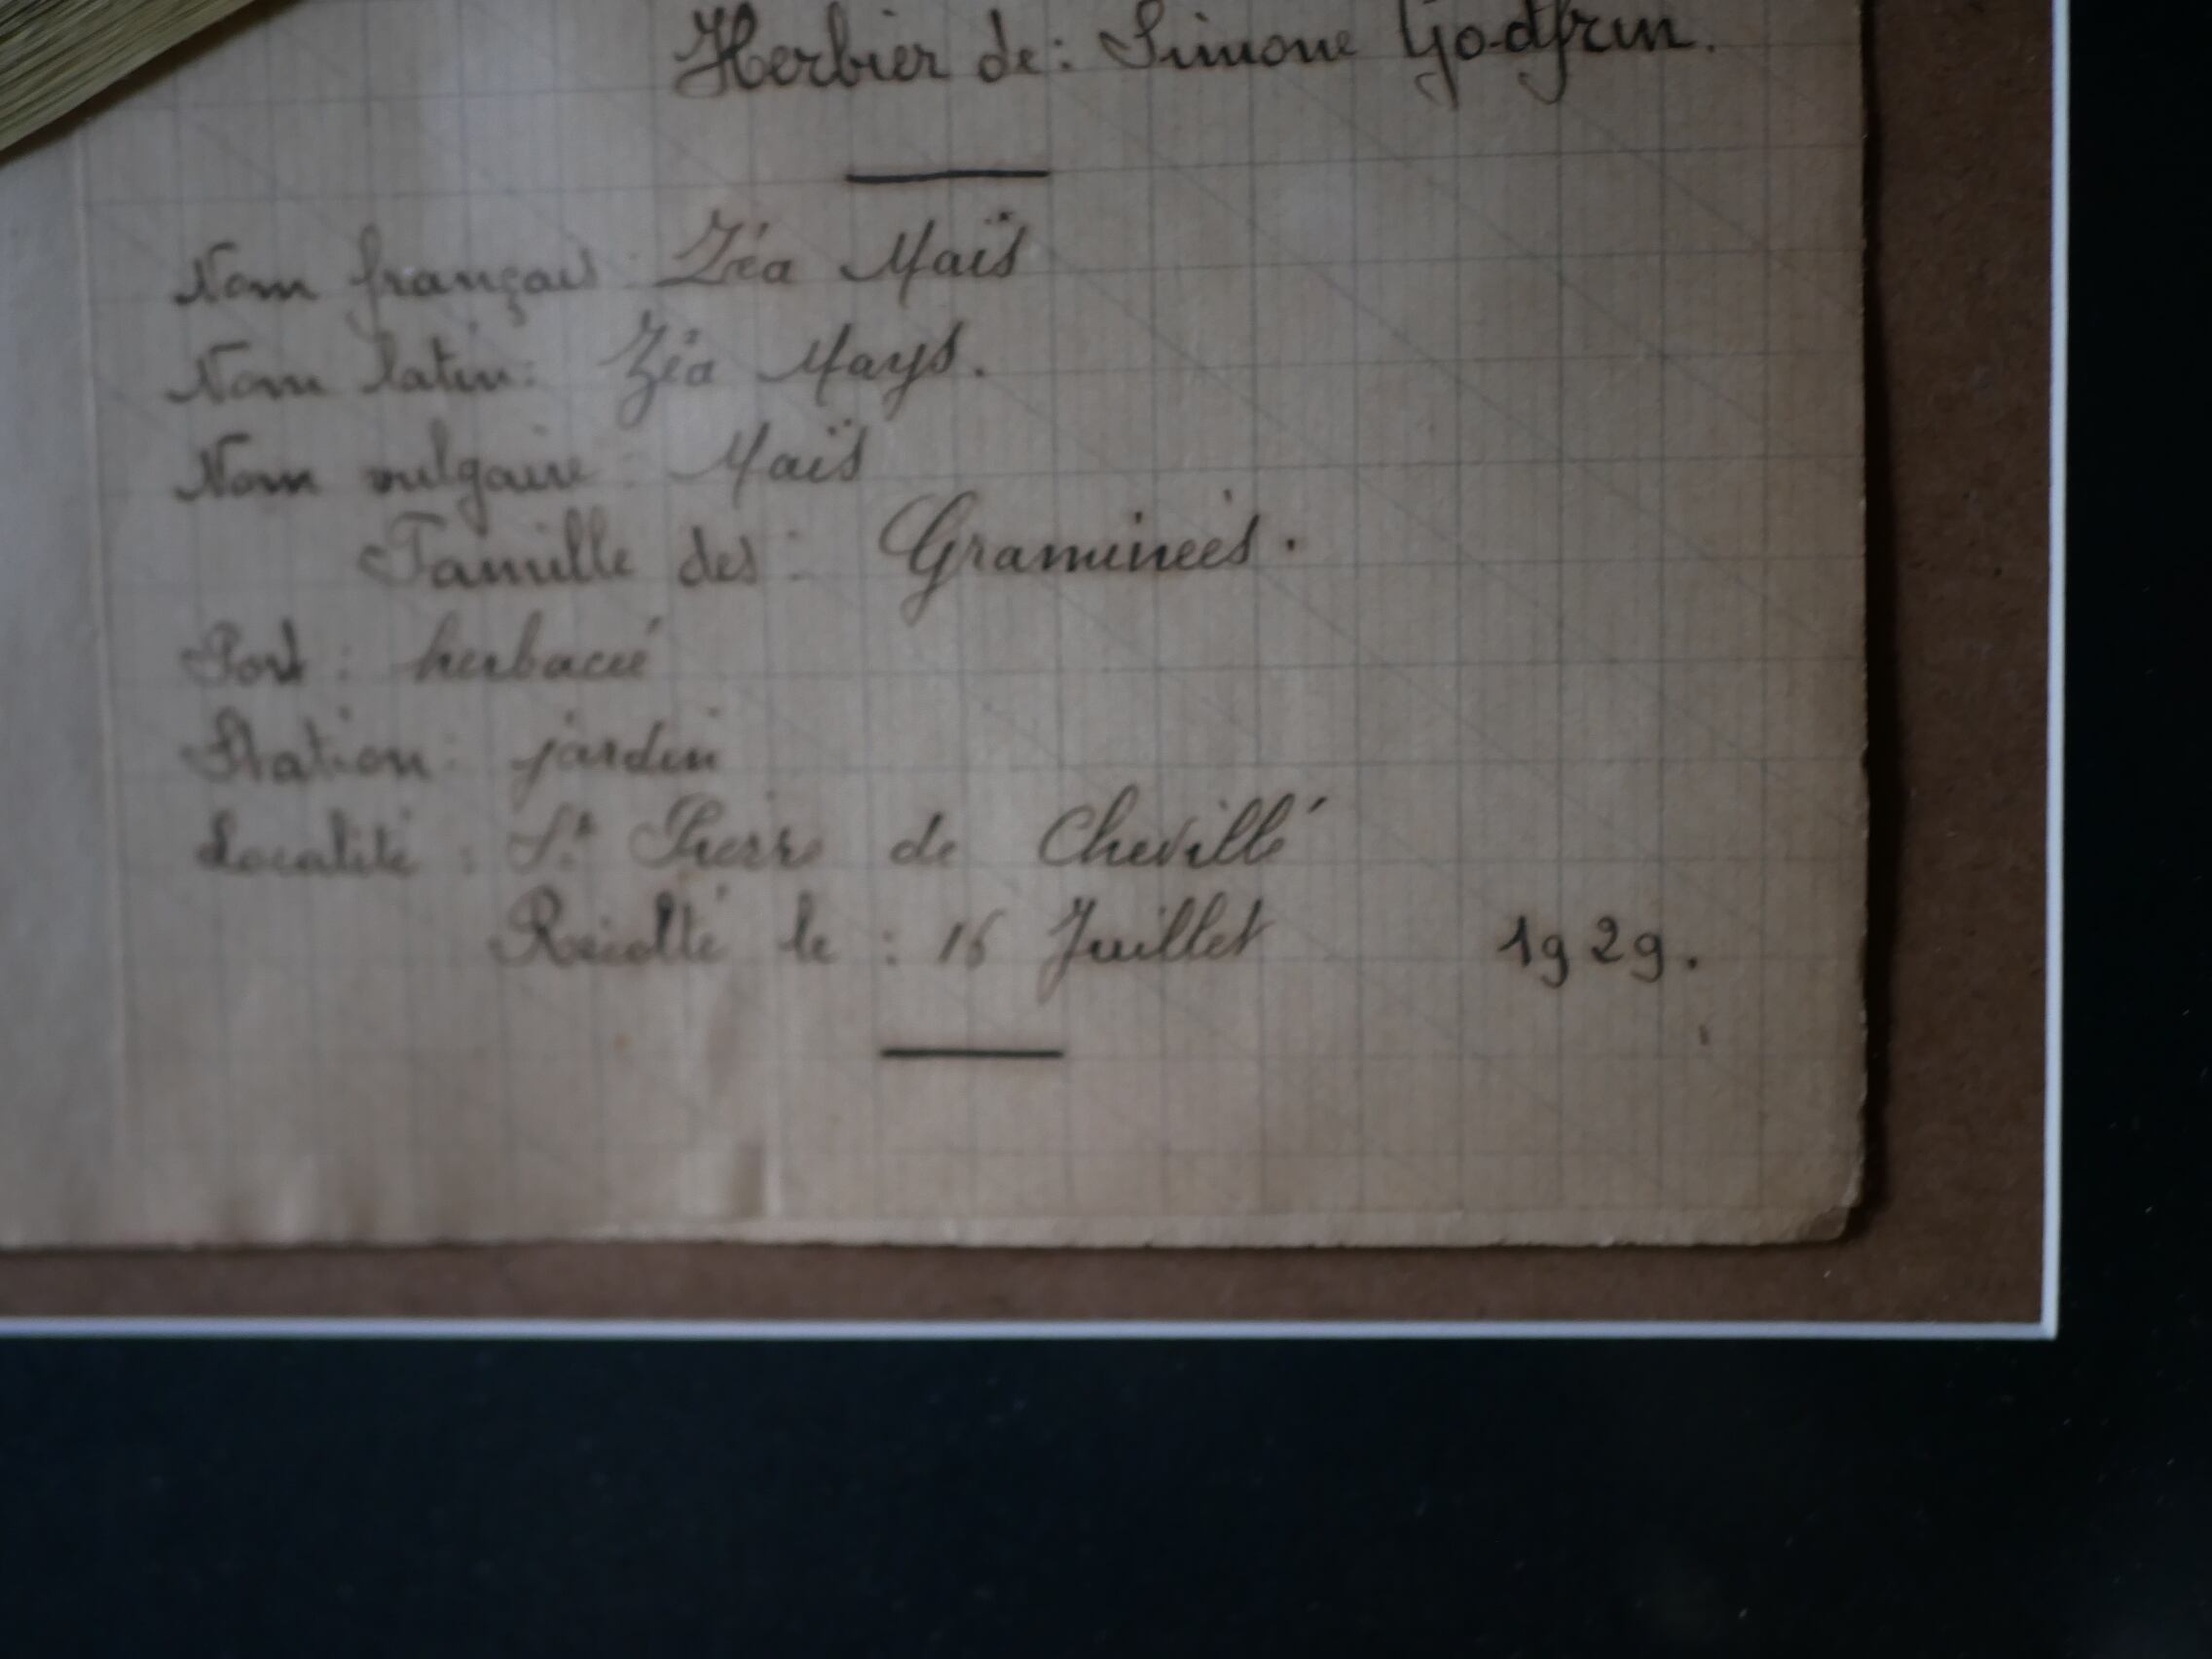 Herbier de : Simone Godfrin.
Nom français : Zéa Maïs
Nom latin : Zéa Mays.
Nom vulgaire : Maïs
Famille des : Graminées.
Port : herbacé
Station : jardin
Localité : St Pierre de Chevillé
Récolté le : 16 Juillet 1929.